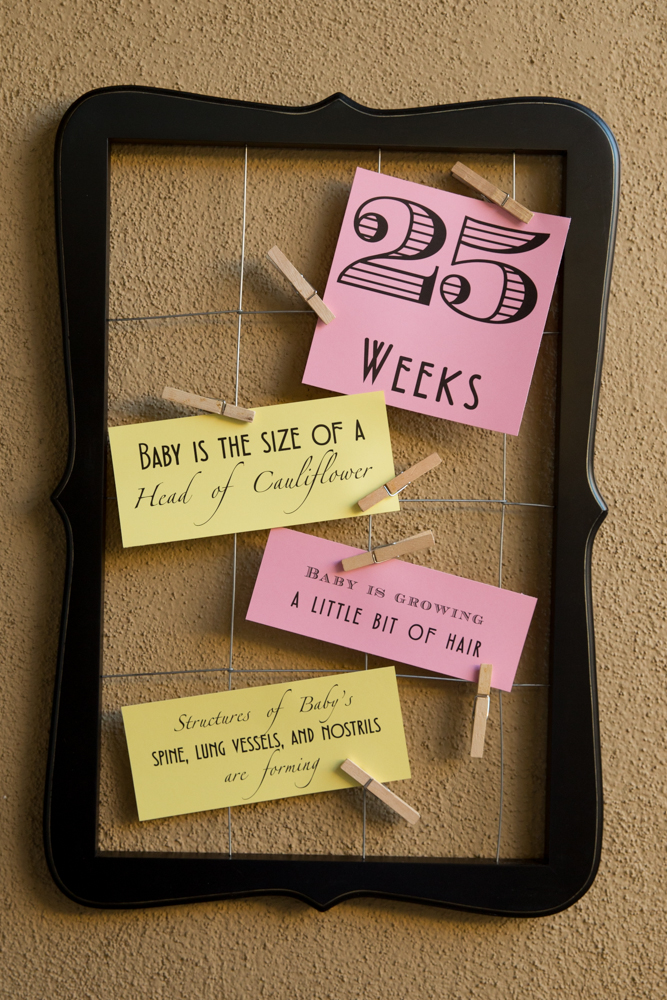 25
WEEKS
BABY IS THE SIZE OF A
Head of Cauliflower
BABY IS GROWING
A LITTLE BIT OF HAIR
Structures of Baby's
SPINE, LUNG VESSELS, AND NOSTRILS
are forming